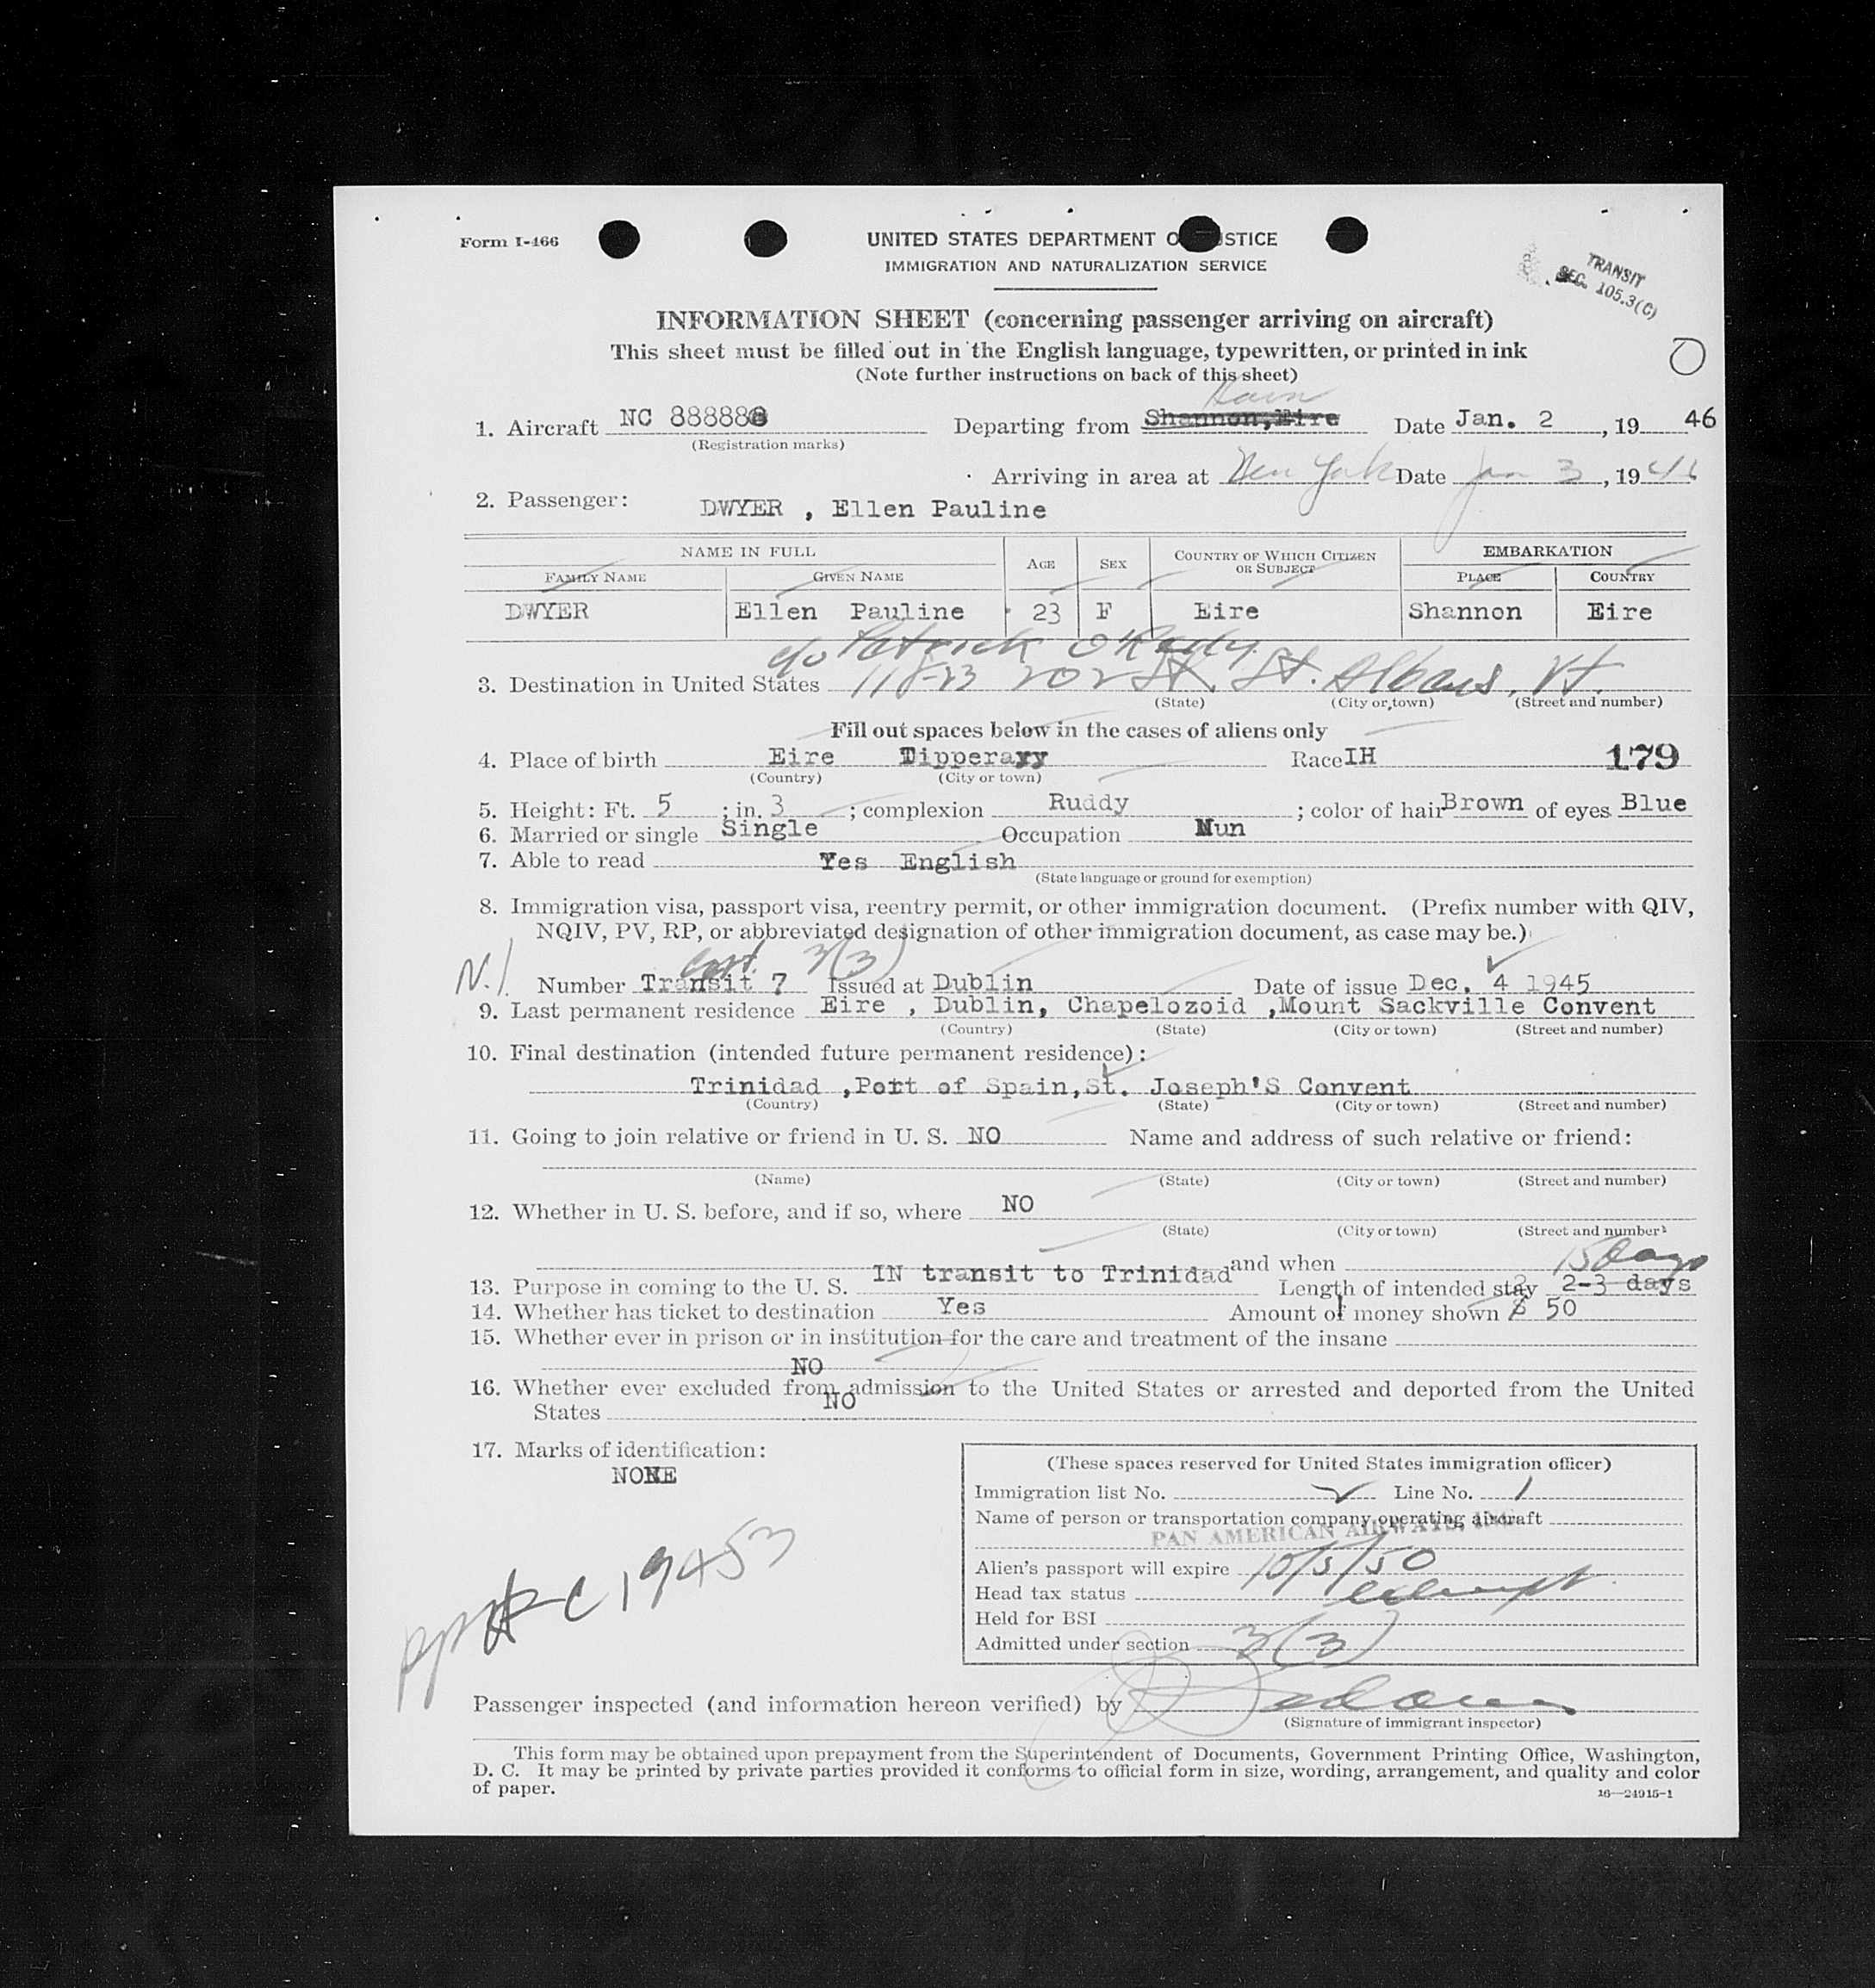 Form I-466
UNITED STATES DEPARTMENT O STICE
IMMIGRATION AND NATURALIZATION SERVICE
TRANSIT
SEC. 105.3(C)
INFORMATION SHEET (concerning passenger arriving on aircraft)
This sheet must be filled out in the English language, typewritten, or printed in ink
(Note further instructions on back of this sheet)
1. Aircraft NC 888888 Departing from Shannon,Eire Date Jan. 2, 19 46
(Registration marks)
Arriving in area at New York Date Jan 3, 19 46
2. Passenger: DWYER , Ellen Pauline
NAME IN FULL AGE SEX COUNTRY OF WHICH CITIZEN OR SUBJECT EMBARKATION
FAMILY NAME GIVEN NAME PLACE COUNTRY
DWYER Ellen Pauline 23 F Eire Shannon Eire
c/o Patrick
3. Destination in United States 118-23 202 St. St. Albans, Vt.
(State) (City or town) (Street and number)
Fill out spaces below in the cases of aliens only
4. Place of birth Eire Tipperary Race IH 179
(Country) (City or town)
5. Height: Ft. 5 ; in. 3 ; complexion Ruddy ; color of hair Brown of eyes Blue
6. Married or single Single Occupation Nun
7. Able to read Yes English
(State language or ground for exemption)
8. Immigration visa, passport visa, reentry permit, or other immigration document. (Prefix number with QIV,
NQIV, PV, RP, or abbreviated designation of other immigration document, as case may be.)
3(3)
Number Transit 7 Issued at Dublin Date of issue Dec. 4 1945
9. Last permanent residence Eire , Dublin, Chapelozoid ,Mount Sackville Convent
(Country) (State) (City or town) (Street and number)
10. Final destination (intended future permanent residence):
Trinidad ,Port of Spain,St. Joseph'S Convent
(Country) (State) (City or town) (Street and number)
11. Going to join relative or friend in U. S. NO Name and address of such relative or friend:
(Name) (State) (City or town) (Street and number)
12. Whether in U. S. before, and if so, where NO
(State) (City or town) (Street and number)
and when
15 days
13. Purpose in coming to the U. S. IN transit to Trinidad Length of intended stay 2-3 days
14. Whether has ticket to destination Yes Amount of money shown $ 50
15. Whether ever in prison or in institution for the care and treatment of the insane
NO
16. Whether ever excluded from admission to the United States or arrested and deported from the United
States NO
17. Marks of identification:
NONE
(These spaces reserved for United States immigration officer)
Immigration list No. Line No. 1
Name of person or transportation company operating aircraft
PAN AMERICAN AIRWAYS, INC
Alien's passport will expire 10/5/50
Head tax status exempt
Held for BSI
Admitted under section 3(3)
C19453
Passenger inspected (and information hereon verified) by
(Signature of immigrant inspector)
This form may be obtained upon prepayment from the Superintendent of Documents, Government Printing Office, Washington,
D. C. It may be printed by private parties provided it conforms to official form in size, wording, arrangement, and quality and color
of paper.
16—24915-1